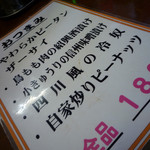 おつまみ
やわらかピータン
ザーサイ
・鳥もも肉の紹興酒漬け
・小きゅうりの信州味噌漬け
・四川風の冷奴
・自家炒りピーナッツ
全品
18